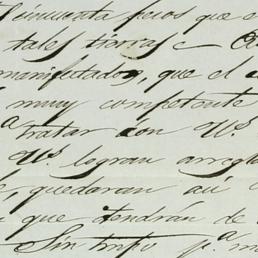 cincuenta pesos que e
tales tierras e
manifestado, que el
muy competente
tratar con Us.
Us. logran arregl
quedaran asi
que tendrán de
Sin tmpo p.a m